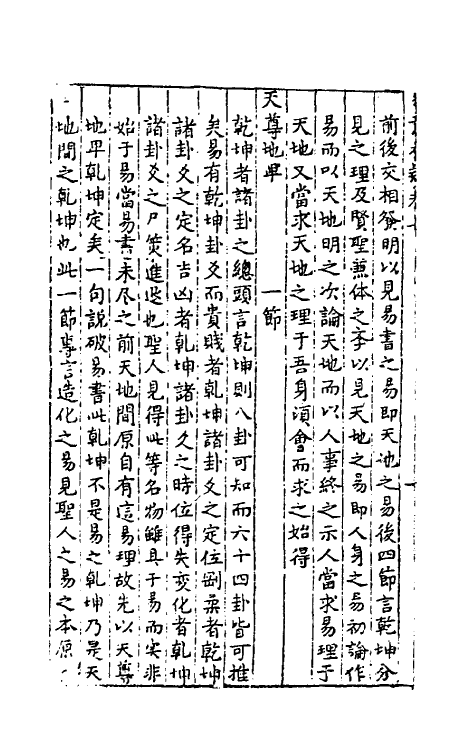 前後交相發明以見易書之易即天地之易後四節言乾坤分
見之理及賢聖兼体之李以見天地之易即人身之易初論作
易而以天地明之次論天地而以人事終之示人當求易理于
天地又當求天地之理于吾身須會而求之始得
天尊地卑 一節
乾坤者諸卦之總頭言乾坤則八卦可知而六十四卦皆可推
矣易有乾坤卦爻而貴賤者乾坤諸卦爻之定位剛柔者乾坤
諸卦爻之定名吉凶者乾坤諸卦爻之時位得失变化者乾坤
諸卦爻之尸筴進退也聖人見得此等名物雖具于易而实非
始于易當易書未尽之前天地間原自有這易理故先以天尊
地卑乾坤定矣一句說破易書此乾坤不是易之乾坤乃是天
地間之乾坤也此一節專言造化之易見聖人之易之本原